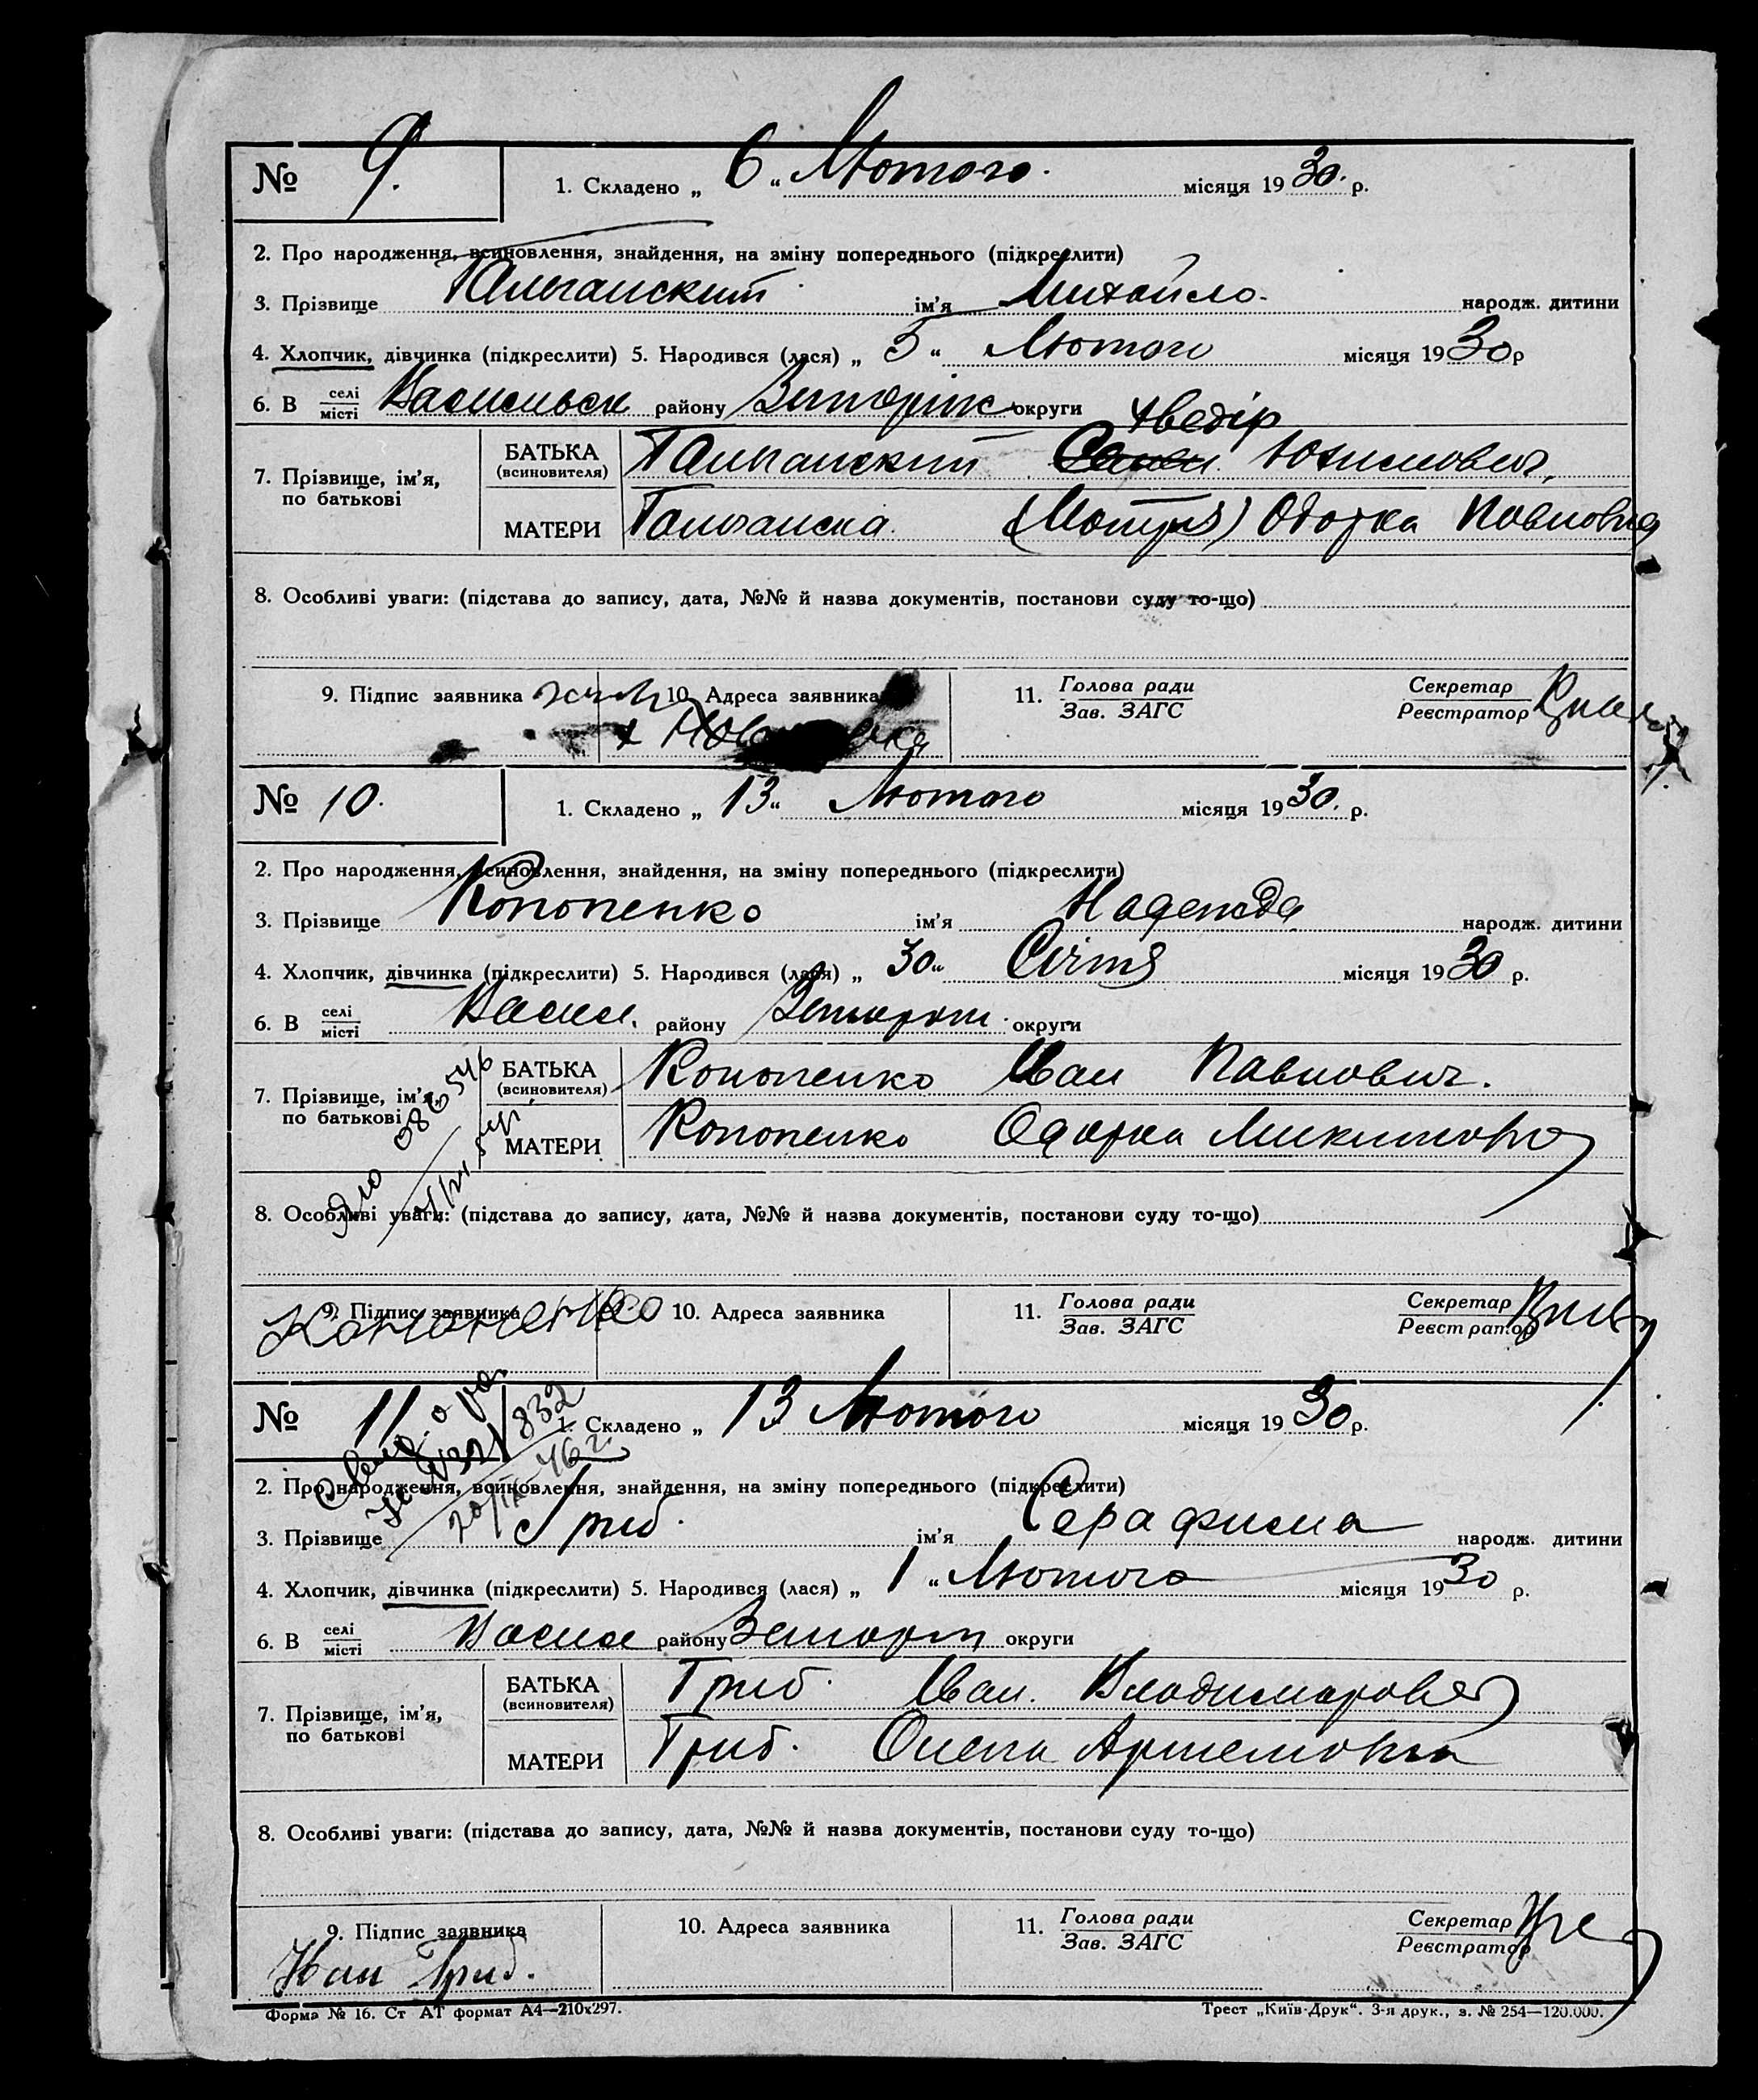 № 9. 1. Складено „ 6 " Лютого. місяця 1930. р.
2. Про народження, всиновлення, знайдення, на зміну попереднього (підкреслити)
3. Прізвище ім'я Михайло. народж. дитини
4. Хлопчик, дівчинка (підкреслити) 5. Народився (лася) „ 5 " Лютого місяця 1930 р
6. В селі місті Васильвск району округи
Хведір
7. Прізвище, ім'я, по батькові БАТЬКА (всиновителя) Юхимович,
МАТЕРИ (Мотря) Одарка Павловна
8. Особливі уваги: (підстава до запису, дата, №№ й назва документів, постанови суду то-що)
9. Підпис заявника 10. Адреса заявника 11. Голова ради Зав. ЗАГС Секретар Реєстратор
х
№ 10. 1. Складено „ 13 " Лютого місяця 1930. р.
2. Про народження, всиновлення, знайдення, на зміну попереднього (підкреслити)
3. Прізвище Кононенко ім'я Надежда народж. дитини
4. Хлопчик, дівчинка (підкреслити) 5. Народився (лася) „ 30 " Січня місяця 1930 р.
6. В селі місті Васил. району округи
7. Прізвище, ім'я, по батькові БАТЬКА (всиновителя) Кононенко Іван Павлович.
МАТЕРИ Кононенко Одарка
086546
8. Особливі уваги: (підстава до запису, дата, №№ й назва документів, постанови суду то-що)
9. Підпис заявника 10. Адреса заявника 11. Голова ради Зав. ЗАГС Секретар Реєстратор
Кононенко
№ 11 1. Складено „ 13 Лютого місяця 1930 р.
2. Про народження, всиновлення, знайдення, на зміну попереднього (підкреслити)
3. Прізвище Гриб. ім'я Серафима народж. дитини
4. Хлопчик, дівчинка (підкреслити) 5. Народився (лася) „ 1 " Лютого місяця 1930 р.
6. В селі місті Васил району округи
7. Прізвище, ім'я, по батькові БАТЬКА (всиновителя) Гриб. Іван.
МАТЕРИ Гриб. Олена Артемовна
8. Особливі уваги: (підстава до запису, дата, №№ й назва документів, постанови суду то-що)
9. Підпис заявника 10. Адреса заявника 11. Голова ради Зав. ЗАГС Секретар Реєстратор
Иван Гриб.
Форма № 16. Ст АТ формат А4—210х297. Трест „Київ-Друк“. 3-я друк., з. № 254—120.000.